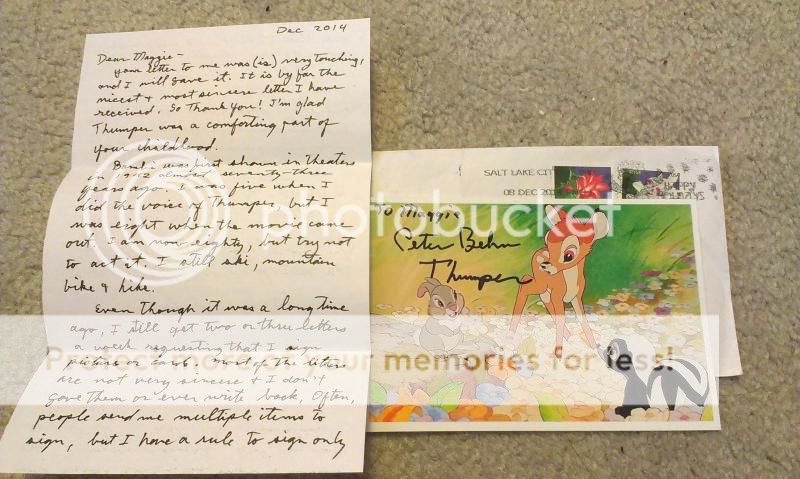 Dec 2014
Dear Maggie -
your letter to me was (is) very touching,
and I will save it. It is by far the
nicest & most sincere letter I have
received. So Thank You! I'm glad
Thumper was a comforting part of
your childhood.
Bambi was first shown in theaters
in 1942 almost seventy-three
years ago. I was five when I
did the voice of Thumper, but I
was eight when the movie came
out. I am now eighty, but try not
to act it. I still ski, mountain
bike & hike.
Even though it was a long time
ago, I still get two or three letters
a week requesting that I sign
pictures or cards. Most of the letters
are not very sincere & I don't
save them or ever write back. Often,
people send me multiple items to
sign, but I have a rule to sign only
SALT LAKE CIT
08 DEC 20
HAPPY
HOLIDAYS
To Maggie
Peter Behn
Thumper
photobucket
Protect more of your memories for less!